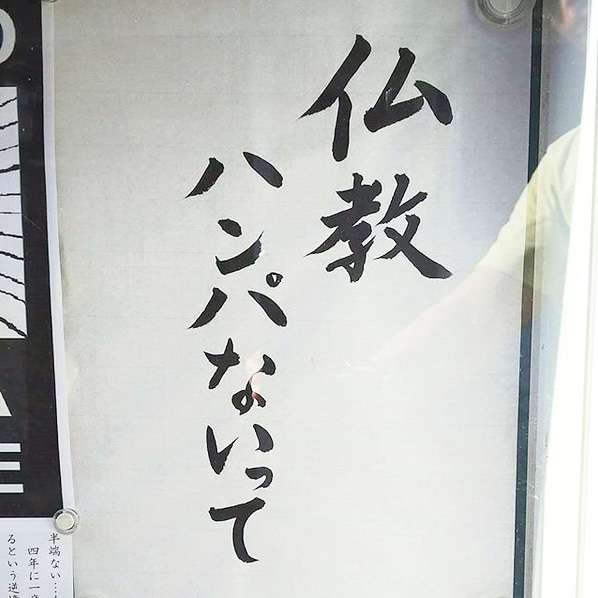 仏教
ハンパないって
半端ない…
四年に一度
るという逆